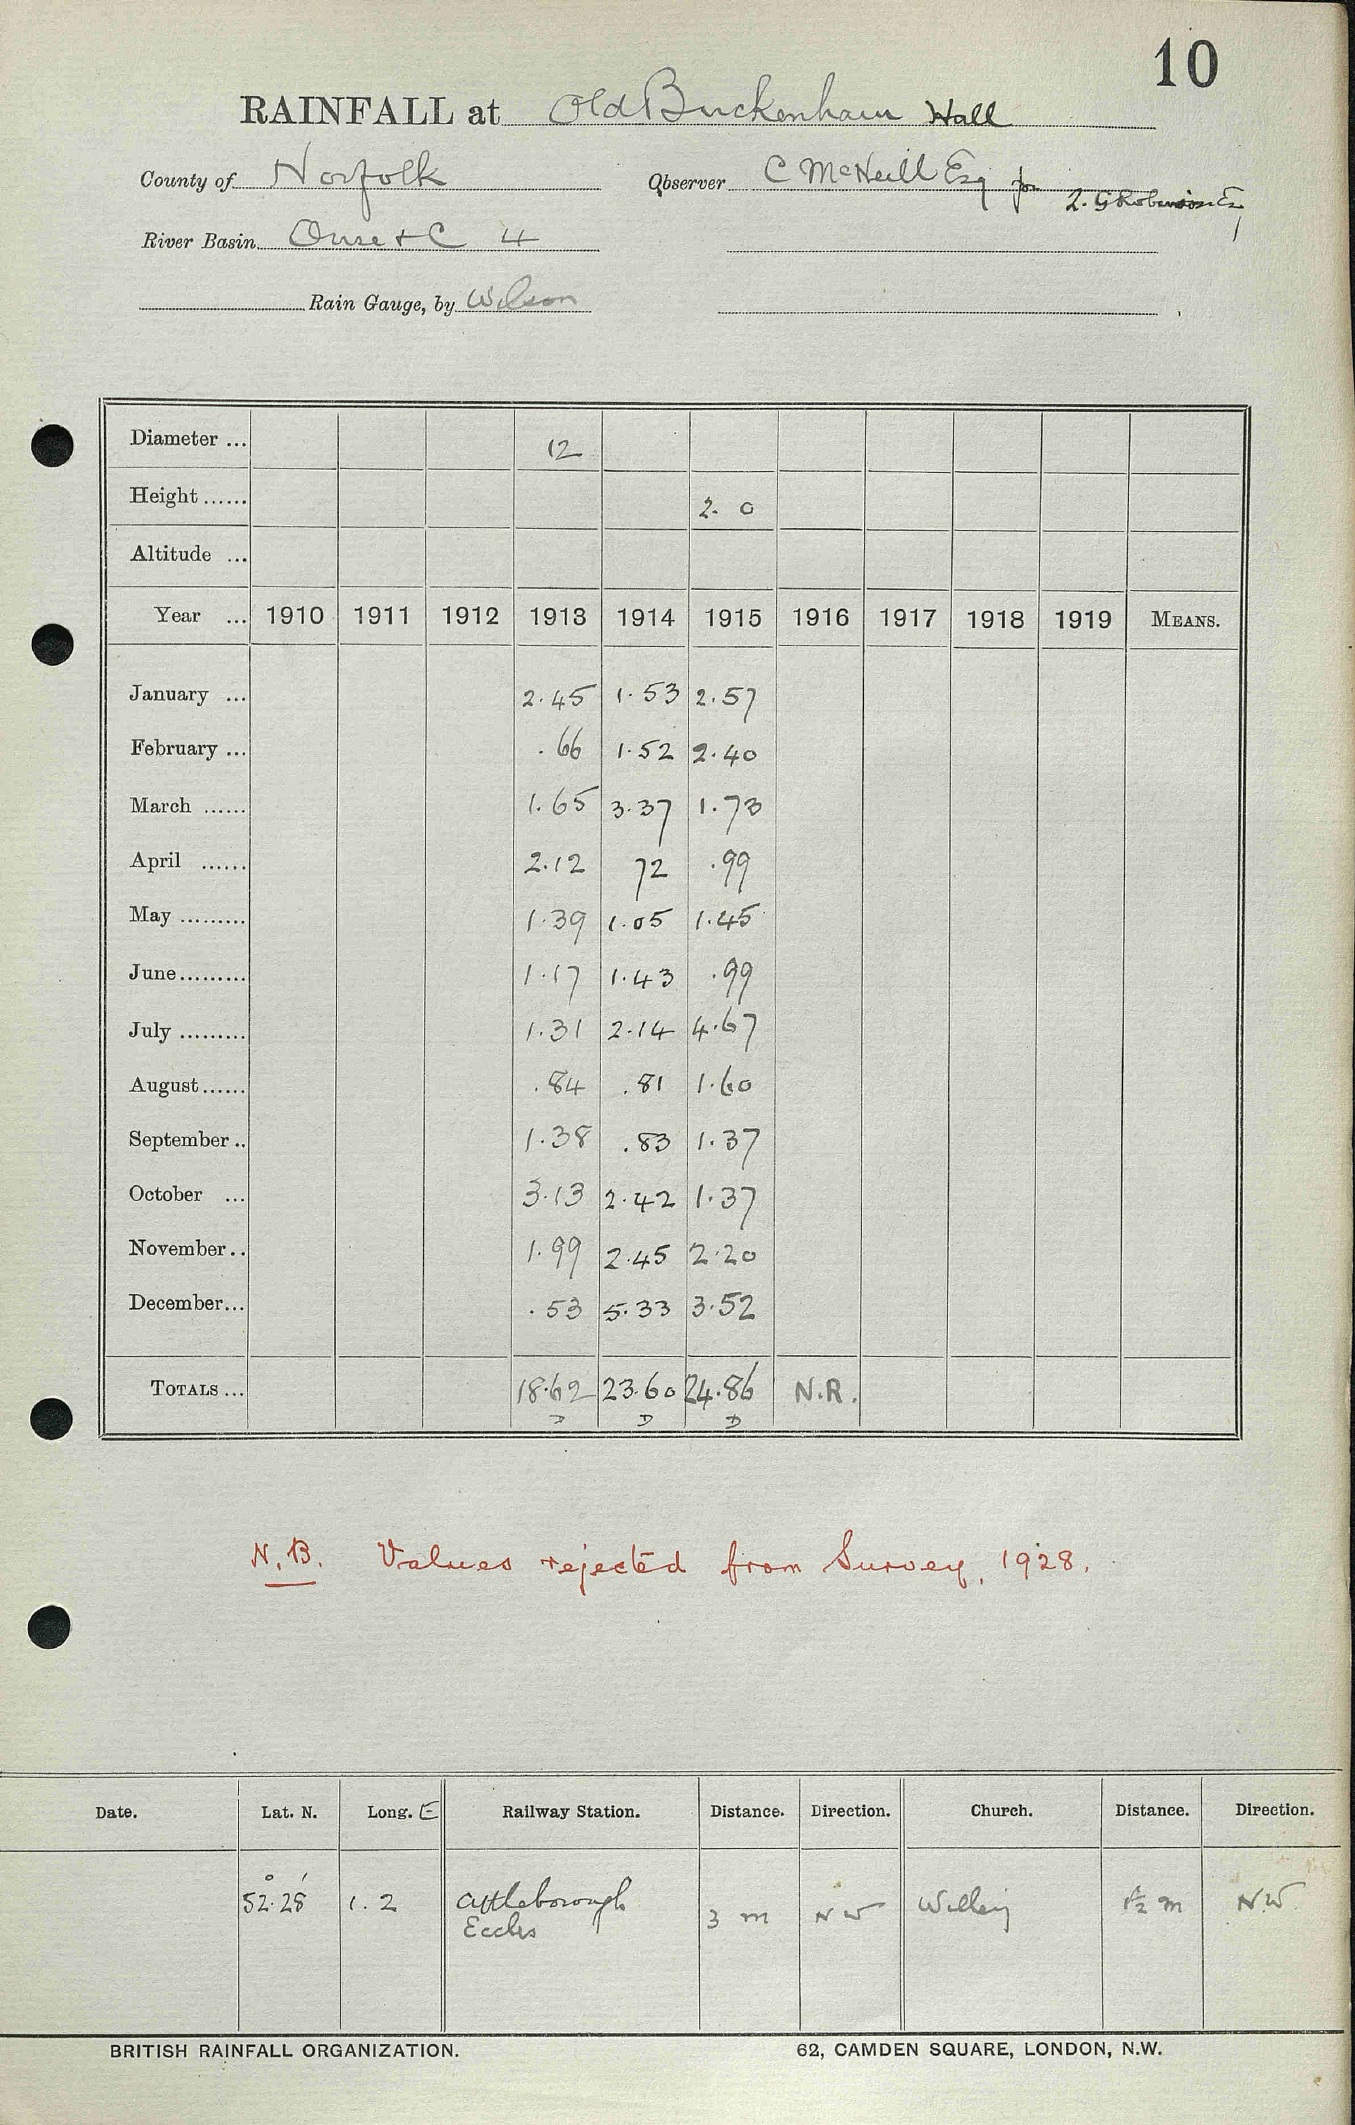 10
RAINFALL at Old Buckenham Hall
County of Norfolk Observer C McNeill Esq for L. G Robinson Esq
River Basin Ouse & C 4
Rain Gauge, by Wilson
Diameter ... 12
Height ...... 2. 0
Altitude ...
Year ... 1910 1911 1912 1913 1914 1915 1916 1917 1918 1919 MEANS.
January ... 2.45 1.53 2.57
February ... .66 1.52 2.40
March ...... 1.65 3.37 1.73
April ...... 2.12 72 .99
May ......... 1.39 1.05 1.45
June......... 1.17 1.43 .99
July ......... 1.31 2.14 4.67
August...... .84 .81 1.60
September .. 1.38 .83 1.37
October ... 3.13 2.42 1.37
November .. 1.99 2.45 2.20
December... .53 5.33 3.52
TOTALS ... 18.62 23.60 24.86 N.R.
D D D
N.B. Values rejected from Survey, 1928.
Date. Lat. N. Long. E Railway Station. Distance. Direction. Church. Distance. Direction.
52° 28′ 1. 2 Attleborough 3 m NW 1½ m NW
Eccles
BRITISH RAINFALL ORGANIZATION. 62, CAMDEN SQUARE, LONDON, N.W.